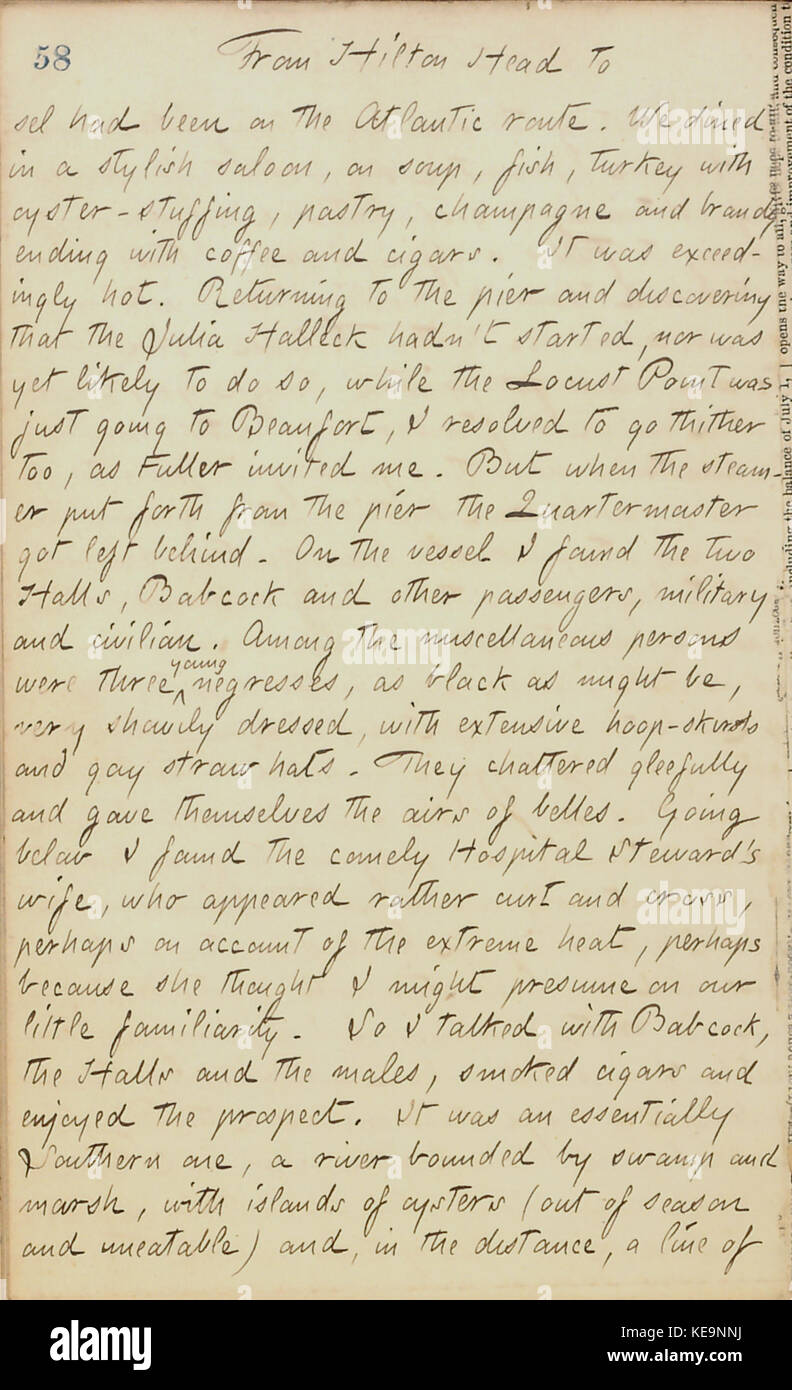 58 From Hilton Head to
sel had been on the Atlantic route. We dined
in a stylish saloon, on soup, fish, turkey with
oyster-stuffing, pastry, champagne and brandy
ending with coffee and cigars. It was exceed-
ingly hot. Returning to the pier and discovering
that the Julia Halleck hadn't started, nor was
yet likely to do so, while the Locust Point was
just going to Beaufort, I resolved to go thither
too, as Fuller invited me. But when the steam-
er put forth from the pier the Quartermaster
got left behind. On the vessel I found the two
Halls, Babcock and other passengers, military
and civilian. Among the miscellaneous persons
were three young negresses, as black as might be,
very showily dressed, with extensive hoop-skirts
and gay straw hats. They chattered gleefully
and gave themselves the airs of belles. Going
below I found the comely Hospital Steward's
wife, who appeared rather curt and cross,
perhaps on account of the extreme heat, perhaps
because she thought I might presume on our
little familiarity. So I talked with Babcock,
the Halls and the males, smoked cigars and
enjoyed the prospect. It was an essentially
Southern one, a river bounded by swamp and
marsh, with islands of oysters (out of season
and uneatable) and, in the distance, a line of
opens the way to all
including the balance of July 1,
alamy
Image ID: KE9NNJ
www.alamy.com